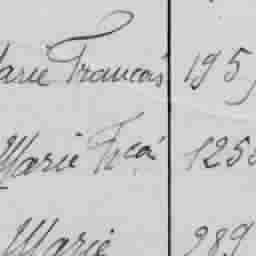 Marie Francois 195
Marie Fcoi 125
Marie 989